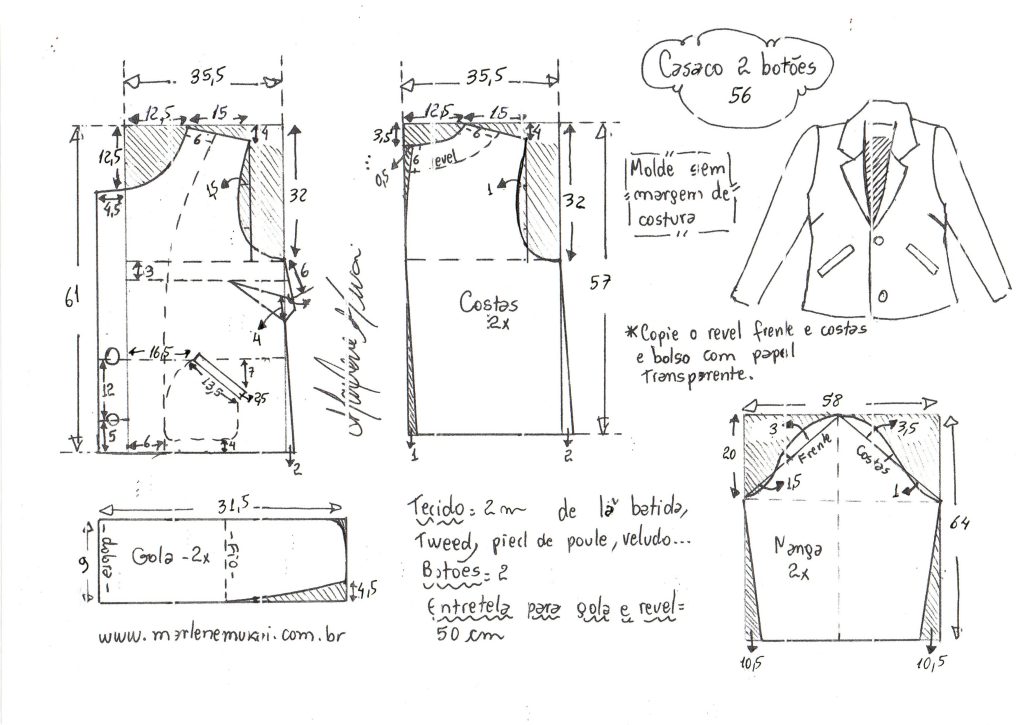 Casaco 2 botões
56
35,5
12,5
15
4
6
12,5
1,5
32
4,5
3
6
61
4
16,5
7
13,5
2,5
12
5
6
4
2
35,5
12,5
15
3,5
4
6
revel
...
0,5
1
32
57
Costas
2x
1
2
Molde sem
margem de
costura
*Copie o revel frente e costas
e bolso com papel
Transparente.
58
3
3,5
20
Frente
Costas
1,5
1
64
Manga
2x
10,5
10,5
31,5
9
-dobra-
Gola -2x
-Fio-
4,5
www.marlenemukai.com.br
Tecido= 2m de lã batida,
Tweed, pied de poule, veludo...
Botões= 2
Entretela para gola e revel=
50 cm